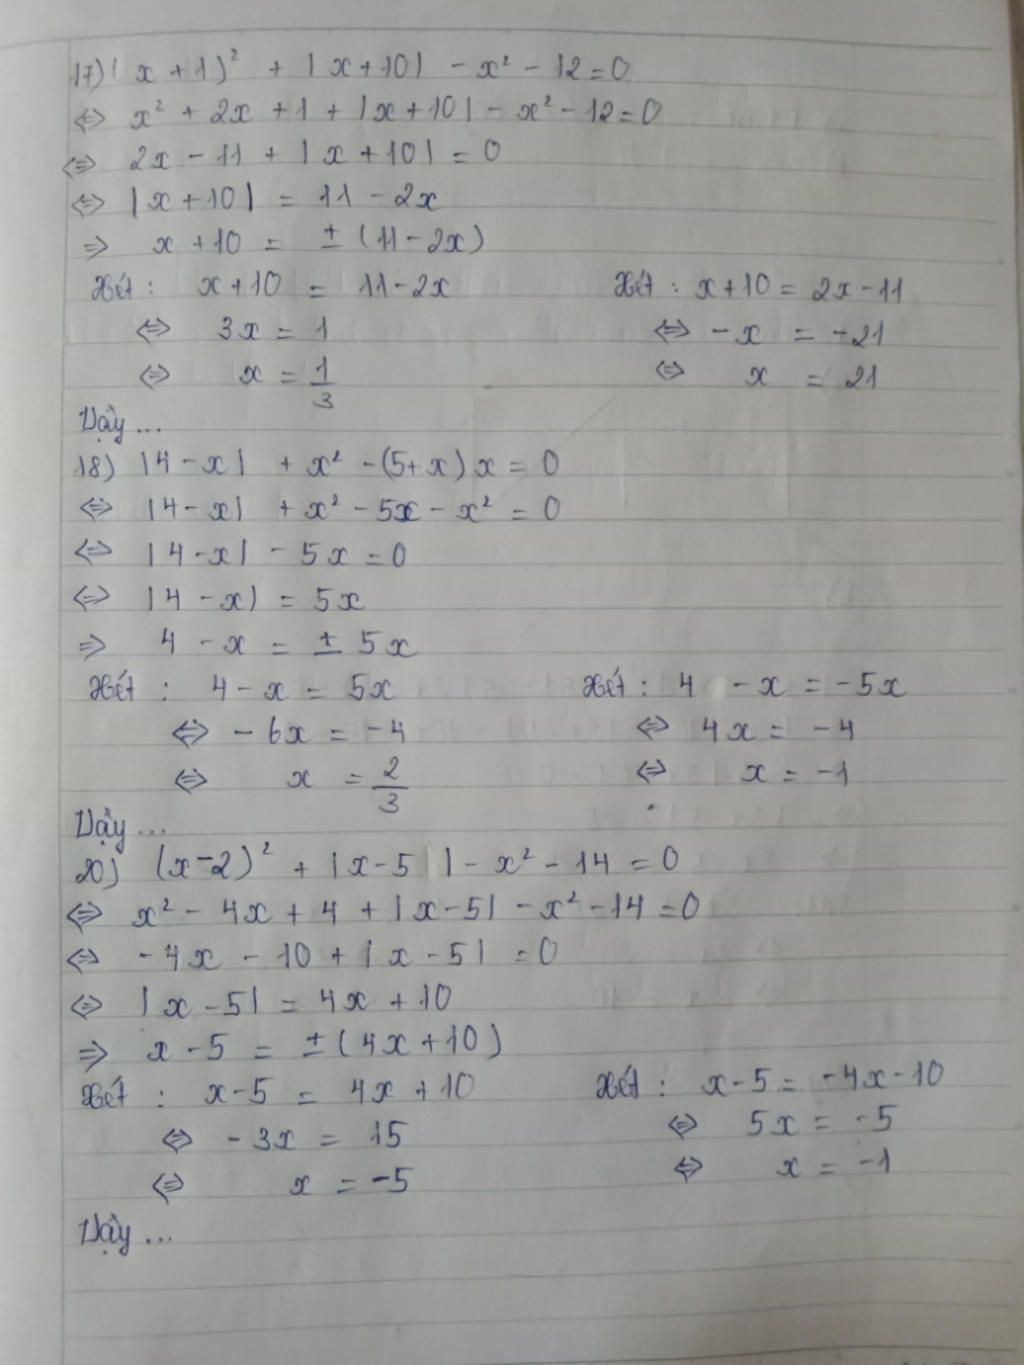 17) (x + 1)² + |x + 10| - x² - 12 = 0
⇔ x² + 2x + 1 + |x + 10| - x² - 12 = 0
⇔ 2x - 11 + |x + 10| = 0
⇔ |x + 10| = 11 - 2x
⇒ x + 10 = ± (11 - 2x)
Xét : x + 10 = 11 - 2x Xét : x + 10 = 2x - 11
⇔ 3x = 1 ⇔ -x = -21
⇔ x = 1/3 ⇔ x = 21
Vậy ...
18) |4 - x| + x² - (5 + x) x = 0
⇔ |4 - x| + x² - 5x - x² = 0
⇔ |4 - x| - 5x = 0
⇔ |4 - x| = 5x
⇒ 4 - x = ± 5x
Xét : 4 - x = 5x Xét : 4 - x = -5x
⇔ -6x = -4 ⇔ 4x = -4
⇔ x = 2/3 ⇔ x = -1
Vậy ...
20) (x - 2)² + |x - 5| - x² - 14 = 0
⇔ x² - 4x + 4 + |x - 5| - x² - 14 = 0
⇔ -4x - 10 + |x - 5| = 0
⇔ |x - 5| = 4x + 10
⇒ x - 5 = ± (4x + 10)
Xét : x - 5 = 4x + 10 Xét : x - 5 = -4x - 10
⇔ -3x = 15 ⇔ 5x = -5
⇔ x = -5 ⇔ x = -1
Vậy ...